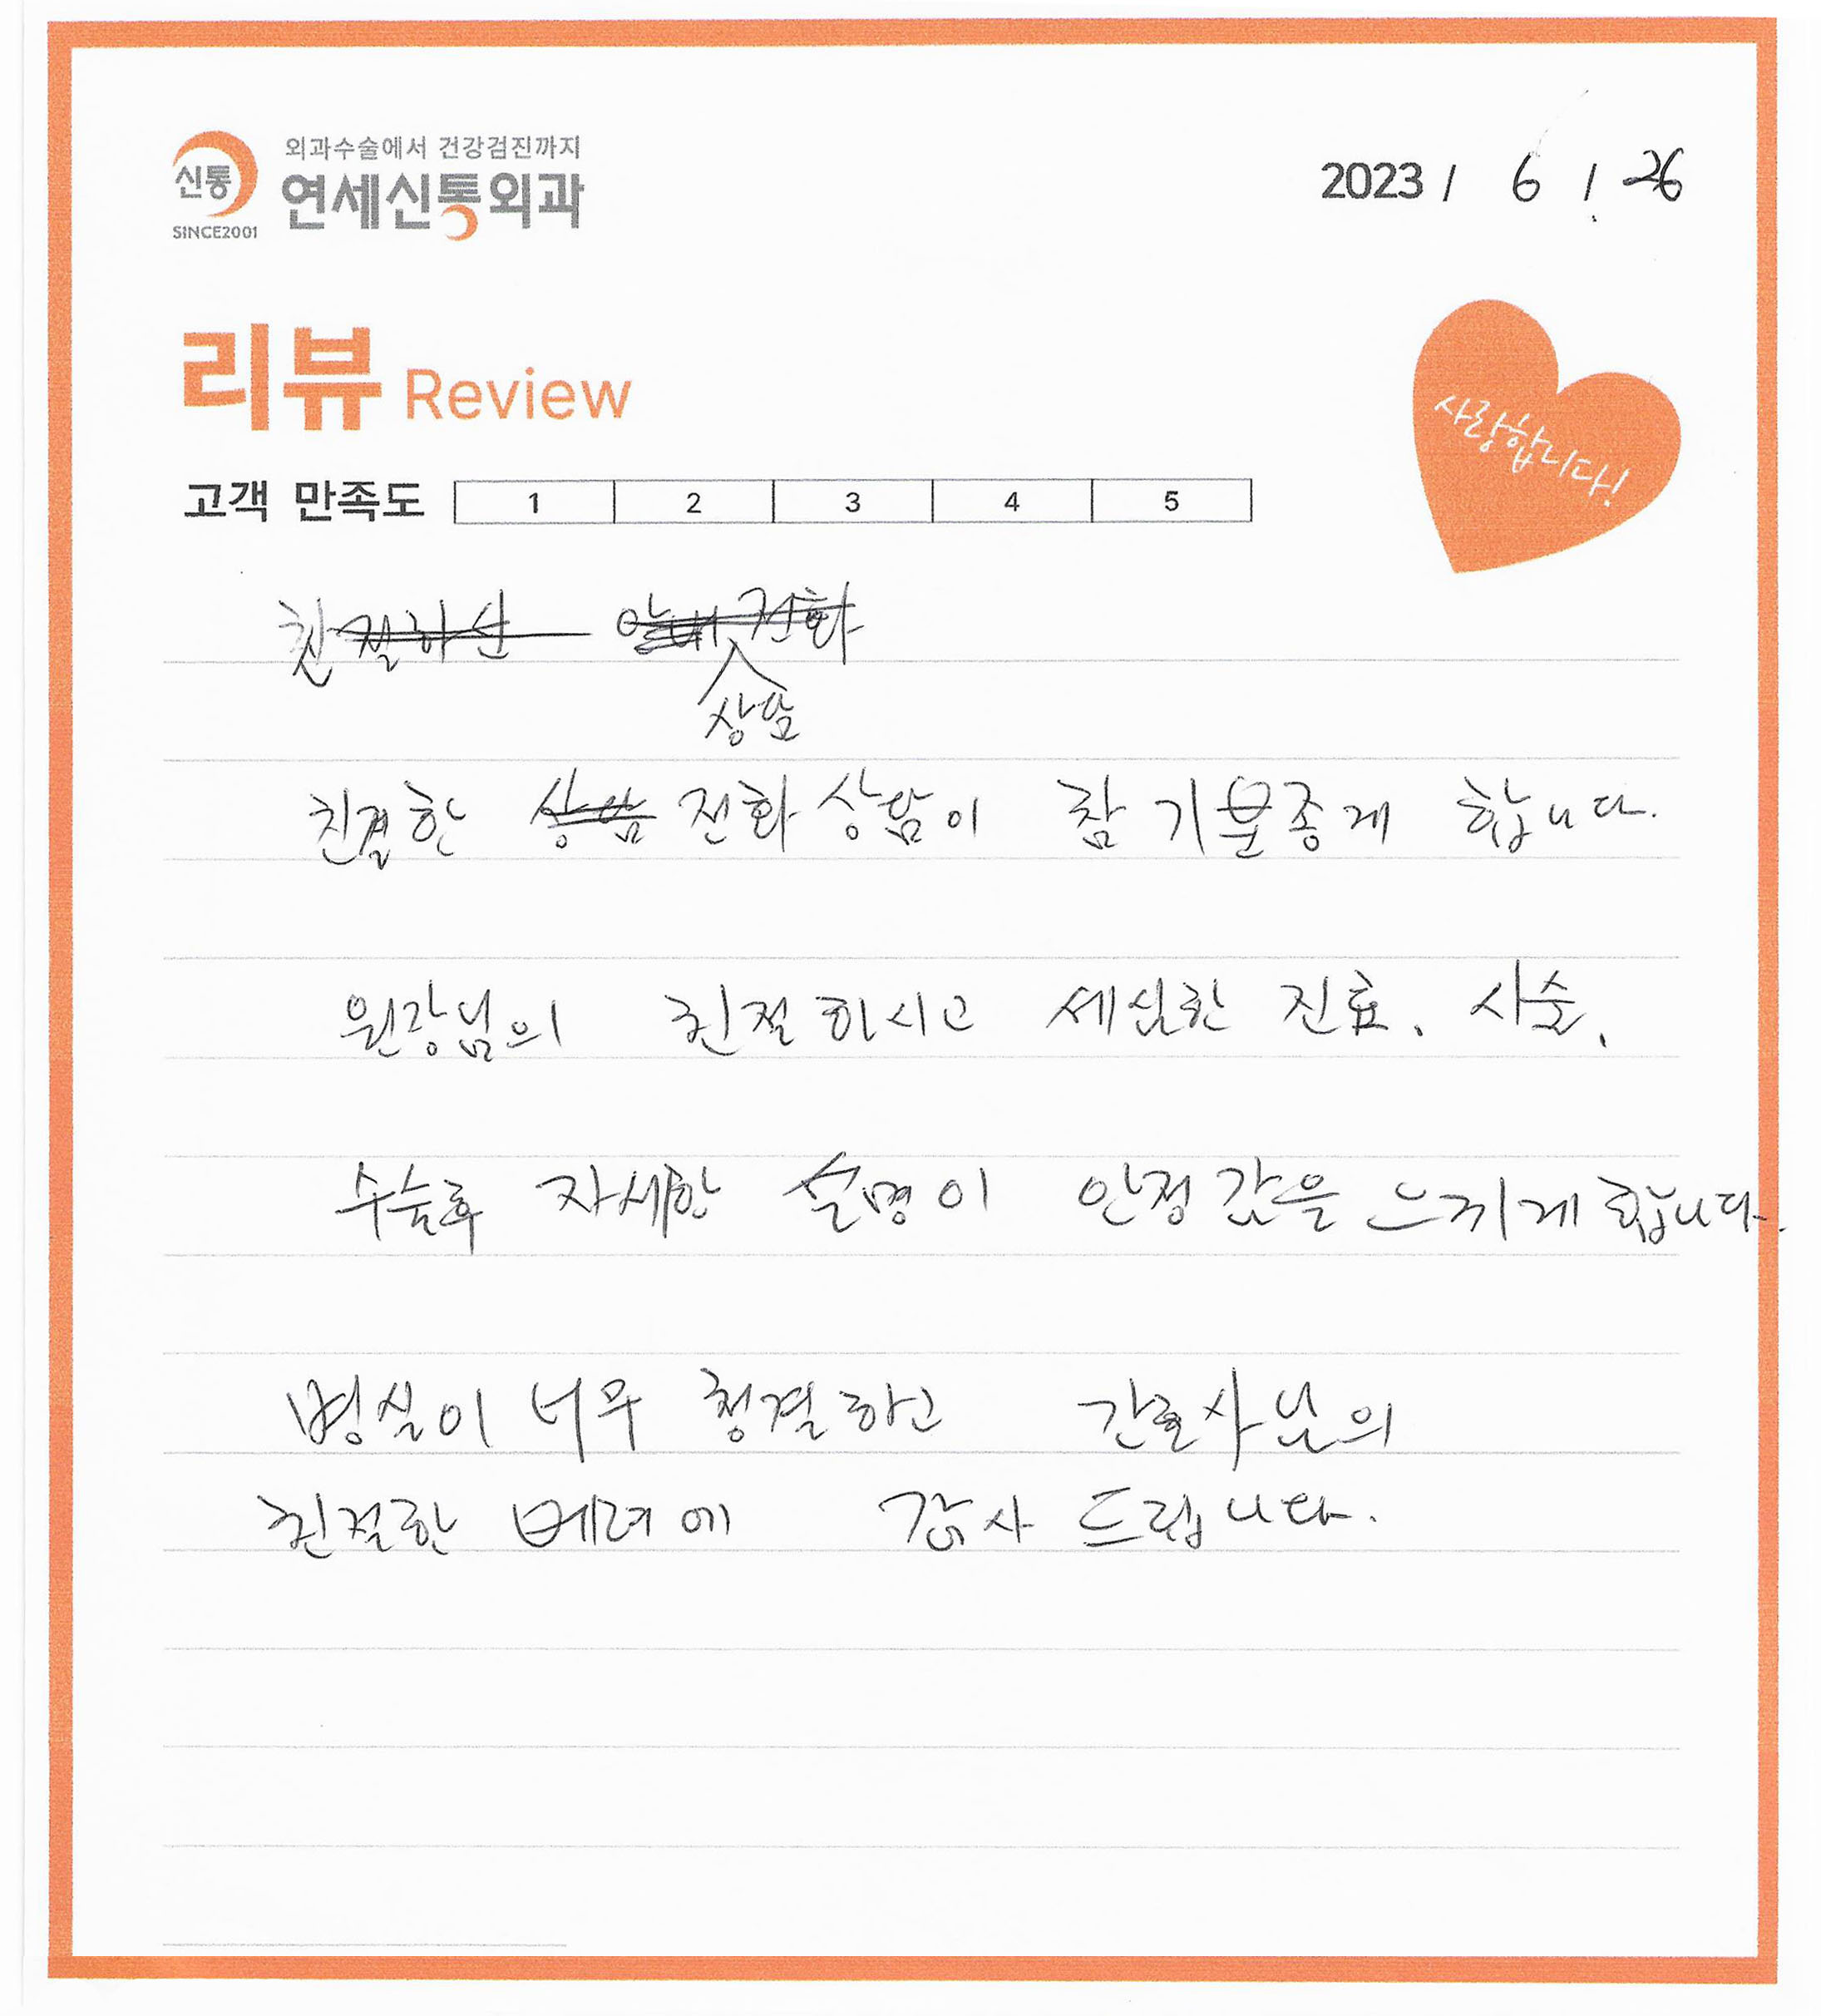 외과수술에서 건강검진까지
신통 연세신통외과
SINCE2001
2023 / 6 / 26
리뷰 Review
사랑합니다!
고객 만족도 1 2 3 4 5
친절하신 전화
상담
친절한 상담 전화상담이 참 기분좋게 합니다.
원장님의 친절하시고 세심한 진료, 시술,
수술후 자세한 설명이 안정감을 느끼게 합니다.
병실이 너무 청결하고 간호사님의
친절한 베려에 감사 드립니다.